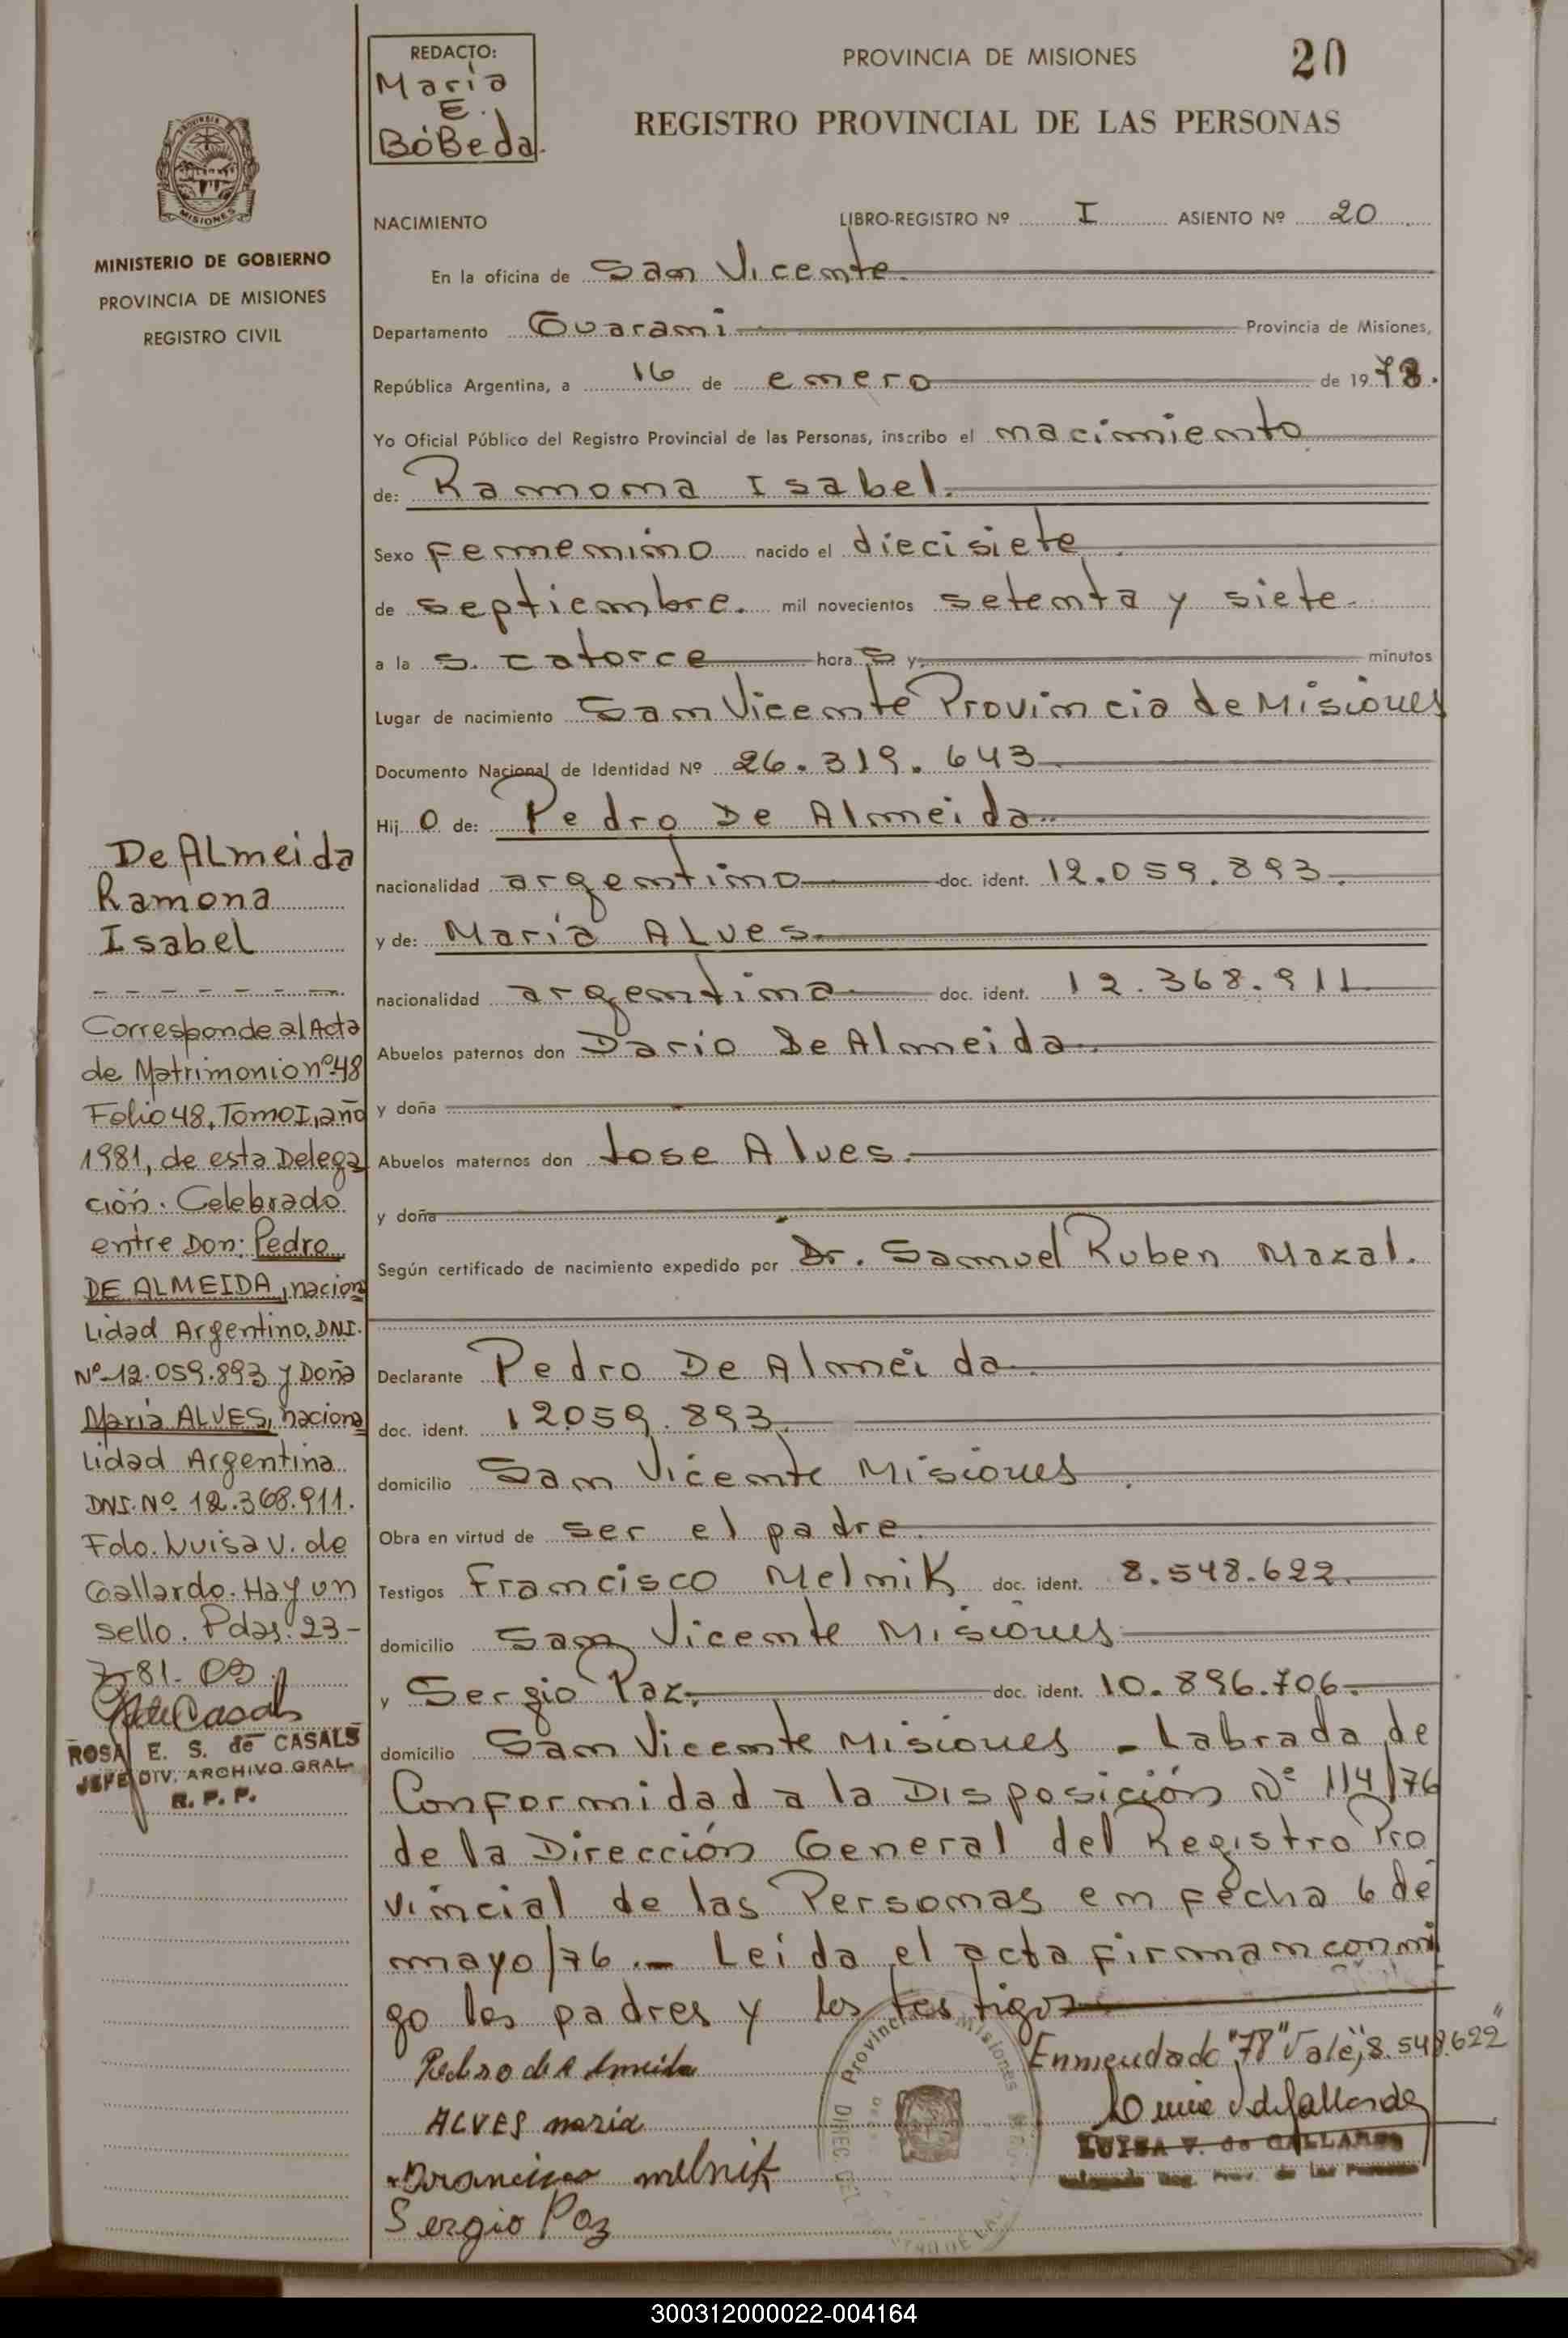 REDACTO:
Maria
E.
BóBeda.
PROVINCIA DE MISIONES
20
REGISTRO PROVINCIAL DE LAS PERSONAS
PROVINCIA
MISIONES
MINISTERIO DE GOBIERNO
PROVINCIA DE MISIONES
REGISTRO CIVIL
NACIMIENTO
LIBRO-REGISTRO Nº I ASIENTO Nº 20
En la oficina de San Vicente.
Departamento Guarani Provincia de Misiones,
República Argentina, a 16 de enero de 1978.
Yo Oficial Público del Registro Provincial de las Personas, inscribo el nacimiento
de: Ramona Isabel.
Sexo Femenino nacido el diecisiete
de septiembre. mil novecientos setenta y siete.
a la s. catorce hora s y minutos
Lugar de nacimiento San Vicente Provincia de Misiones
Documento Nacional de Identidad Nº 26.319.643
Hij o de: Pedro De Almeida
nacionalidad argentino doc. ident. 12.059.893.
y de: Maria Alves.
nacionalidad argentina doc. ident. 12.368.911
Abuelos paternos don Dario De Almeida
y doña
Abuelos maternos don Jose Alves.
y doña
Según certificado de nacimiento expedido por Dr. Samuel Ruben Mazal.
Declarante Pedro De Almeida
doc. ident. 12059.893.
domicilio San Vicente Misiones
Obra en virtud de ser el padre.
Testigos Francisco Melnik doc. ident. 8.548.622.
domicilio San Vicente Misiones
y Sergio Paz. doc. ident. 10.896.706.
domicilio San Vicente Misiones - Labrada de
Conformidad a la Disposición Nº 114/76
de la Dirección General del Registro Pro
vincial de las Personas en fecha 6 de
mayo/76.- Leida el acta firman conmi
go los padres y los testigos
Enmendado "78" Vale, "8.548.622"
Pedro de Almeida
ALVES maria
Francisco melnik
Sergio Paz
LUISA V. de GALLARDO
Delegada Reg. Prov. de las Personas
Provincia de Misiones
De ALmeida
Ramona
Isabel
Corresponde al Acta
de Matrimonio nº 48
Folio 48, Tomo I, año
1981, de esta Delega
ción. Celebrado
entre Don: Pedro
DE ALMEIDA, naciona
lidad Argentino, DNI.
Nº 12.059.893 y Doña
Maria ALVES, naciona
lidad Argentina
DNI. Nº 12.368.911.
Fdo. Luisa V. de
Gallardo. Hay un
sello. Pdas. 23-
7-81.
ROSA E. S. de CASALS
JEFE DIV. ARCHIVO GRAL.
R. P. P.
300312000022-004164